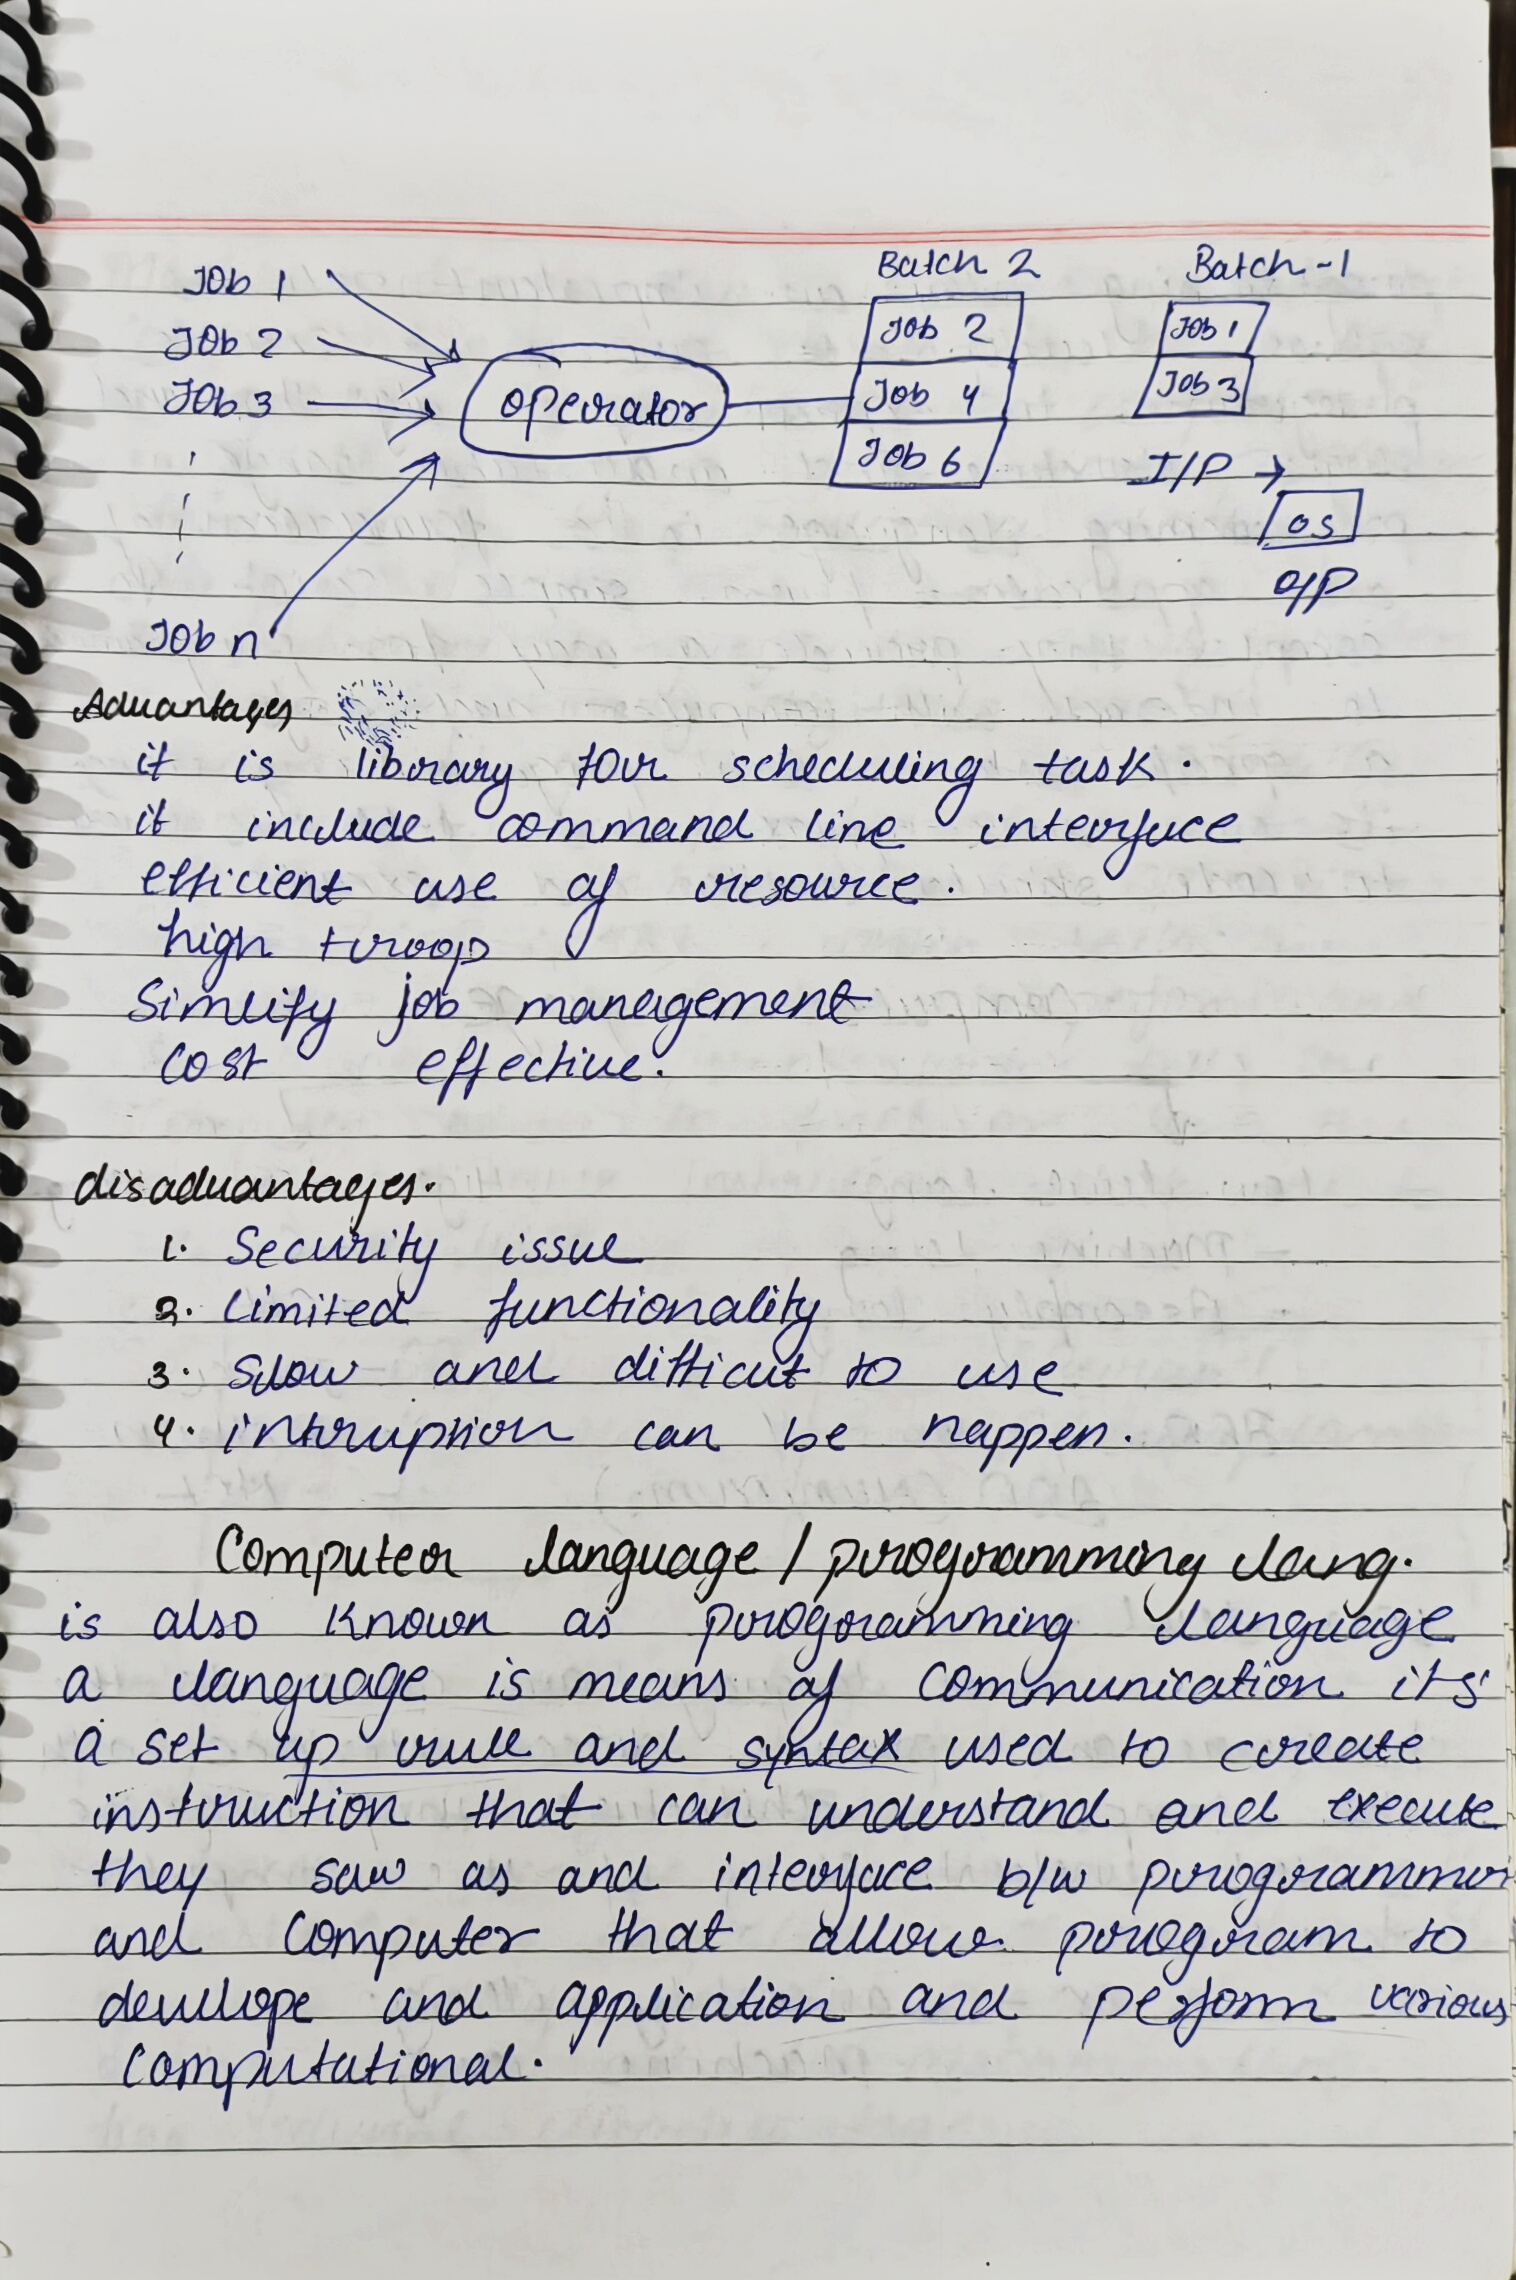 Job 1
Job 2
Job 3
Job n
operator
Batch 2
Job 2
Job 4
Job 6
Batch -1
Job 1
Job 3
I/P →
OS
O/P
Advantages
it is library for scheduling task.
it include command line interface
efficient use of resource.
high troop
Simlify job management
cost effective.
disadvantages.
1. Security issue
2. limited functionality
3. Slow and difficut to use
4. intruption can be happen.
Computer language / programming lang.
is also known as programming language
a language is means of communication its
a set up rule and syntax used to create
instruction that can understand and execute
they saw as and interface b/w programmer
and computer that allow program to
develope and application and perform various
computational.